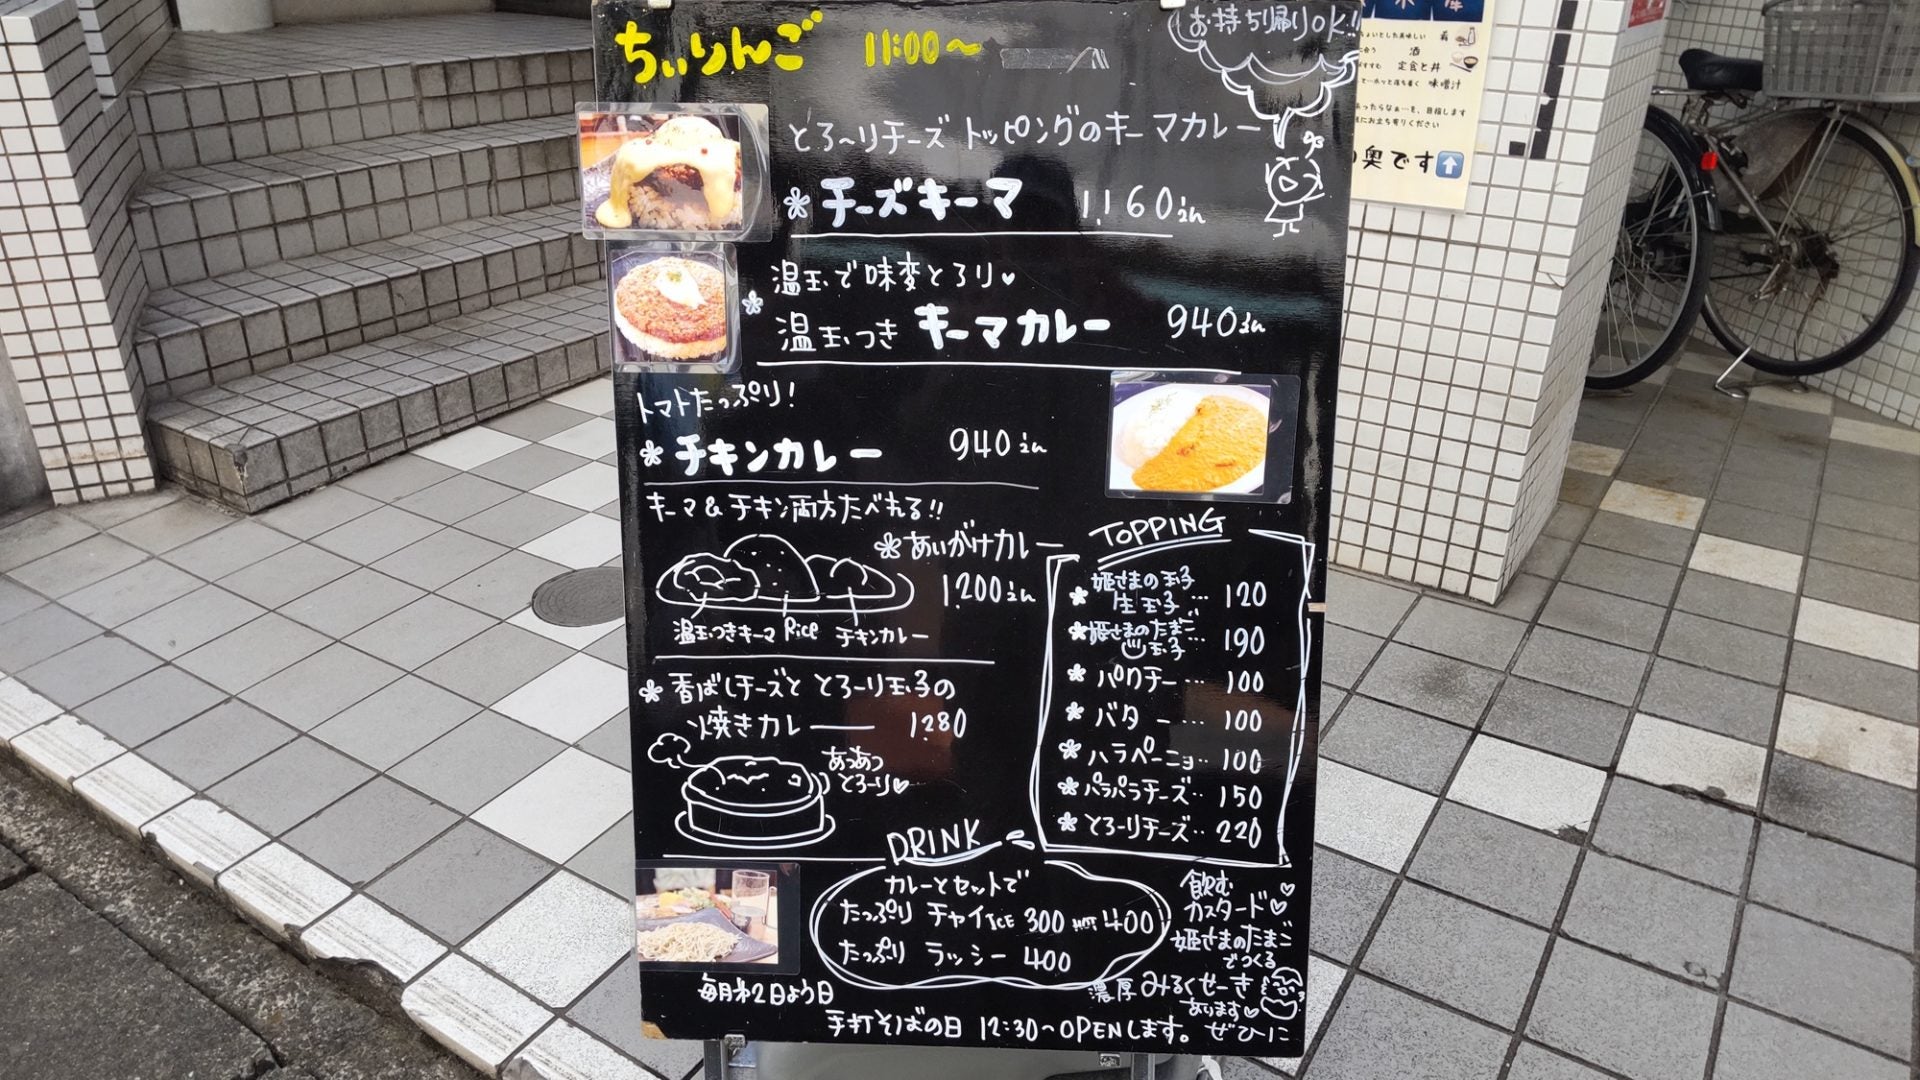 ちぃりんご 11:00～
お持ち帰りOK!!
とろ～りチーズトッピングのキーマカレー
チーズキーマ 1,160えん
温玉で味変とろり♥
温玉つきキーマカレー 940えん
トマトたっぷり!
チキンカレー 940えん
キーマ&チキン両方たべれる!!
あいがけカレー
1,200えん
温玉つきキーマ Rice チキンカレー
香ばしチーズととろーり玉子の
焼きカレー 1,280
あつあつ
とろーり♥
TOPPING
姫さまの玉子
生玉子… 120
姫さまのたまご
玉子… 190
パクチー… 100
バター… 100
ハラペーニョ… 100
パラパラチーズ… 150
とろーりチーズ… 220
DRINK
カレーとセットで
たっぷり チャイ ICE 300 HOT 400
たっぷり ラッシー 400
飲む
カスタード♡
姫さまのたまご
でつくる
濃厚みるくせーき
あります♥
ぜひに
毎月第2日よう日
手打そばの日 12:30～OPENします。
酒
定食と丼
味噌汁
の奥です